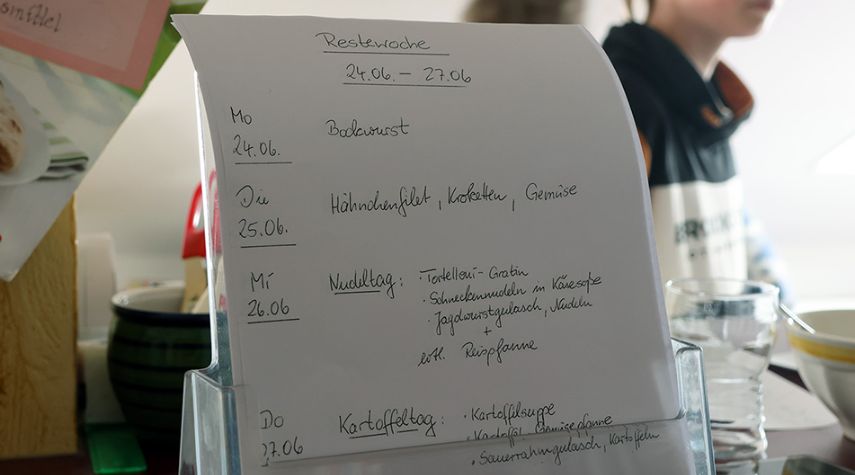 Restewoche
24.06. – 27.06
Mo
24.06.
Bockwurst
Die
25.06.
Hähnchenfilet, Kroketten, Gemüse
Mi
26.06
Nudeltag: · Tortelleni-Gratin
· Schneckennudeln in Käsesoße
· Jagdwurstgulasch, Nudeln
+
evtl. Reispfanne
Do
27.06
Kartoffeltag: · Kartoffelsuppe
· Kartoffel-Gemüsepfanne
· Sauerrahmgulasch, Kartoffeln